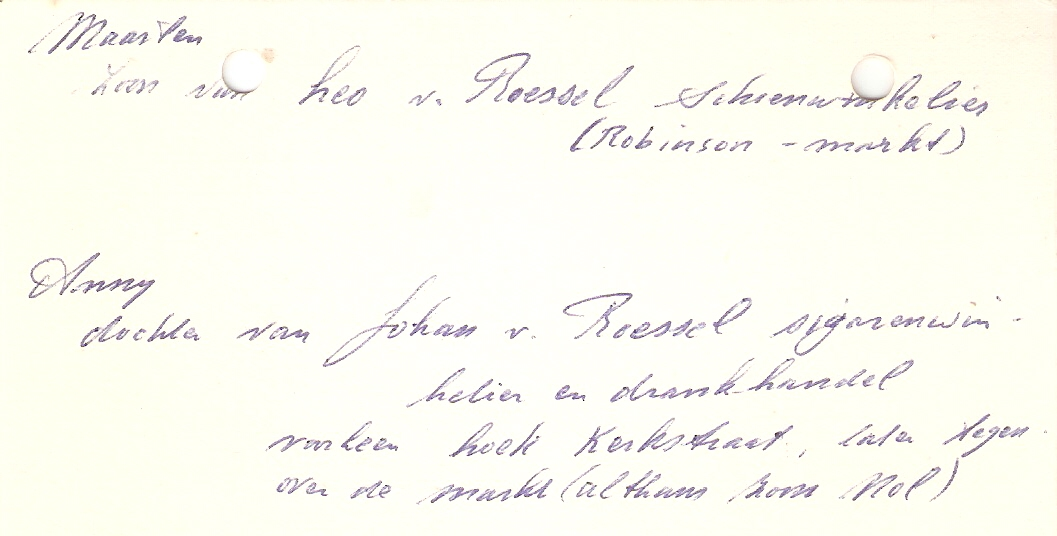 Maarten
Zoon van Leo v. Roessel Schoenwinkelier
(Robinson - markt)
Anny
dochter van Johan v. Roessel sigarenwin-
kelier en drankhandel
voorheen hoek Kerkstraat, later tegen-
over de markt (althans zoon Nol)